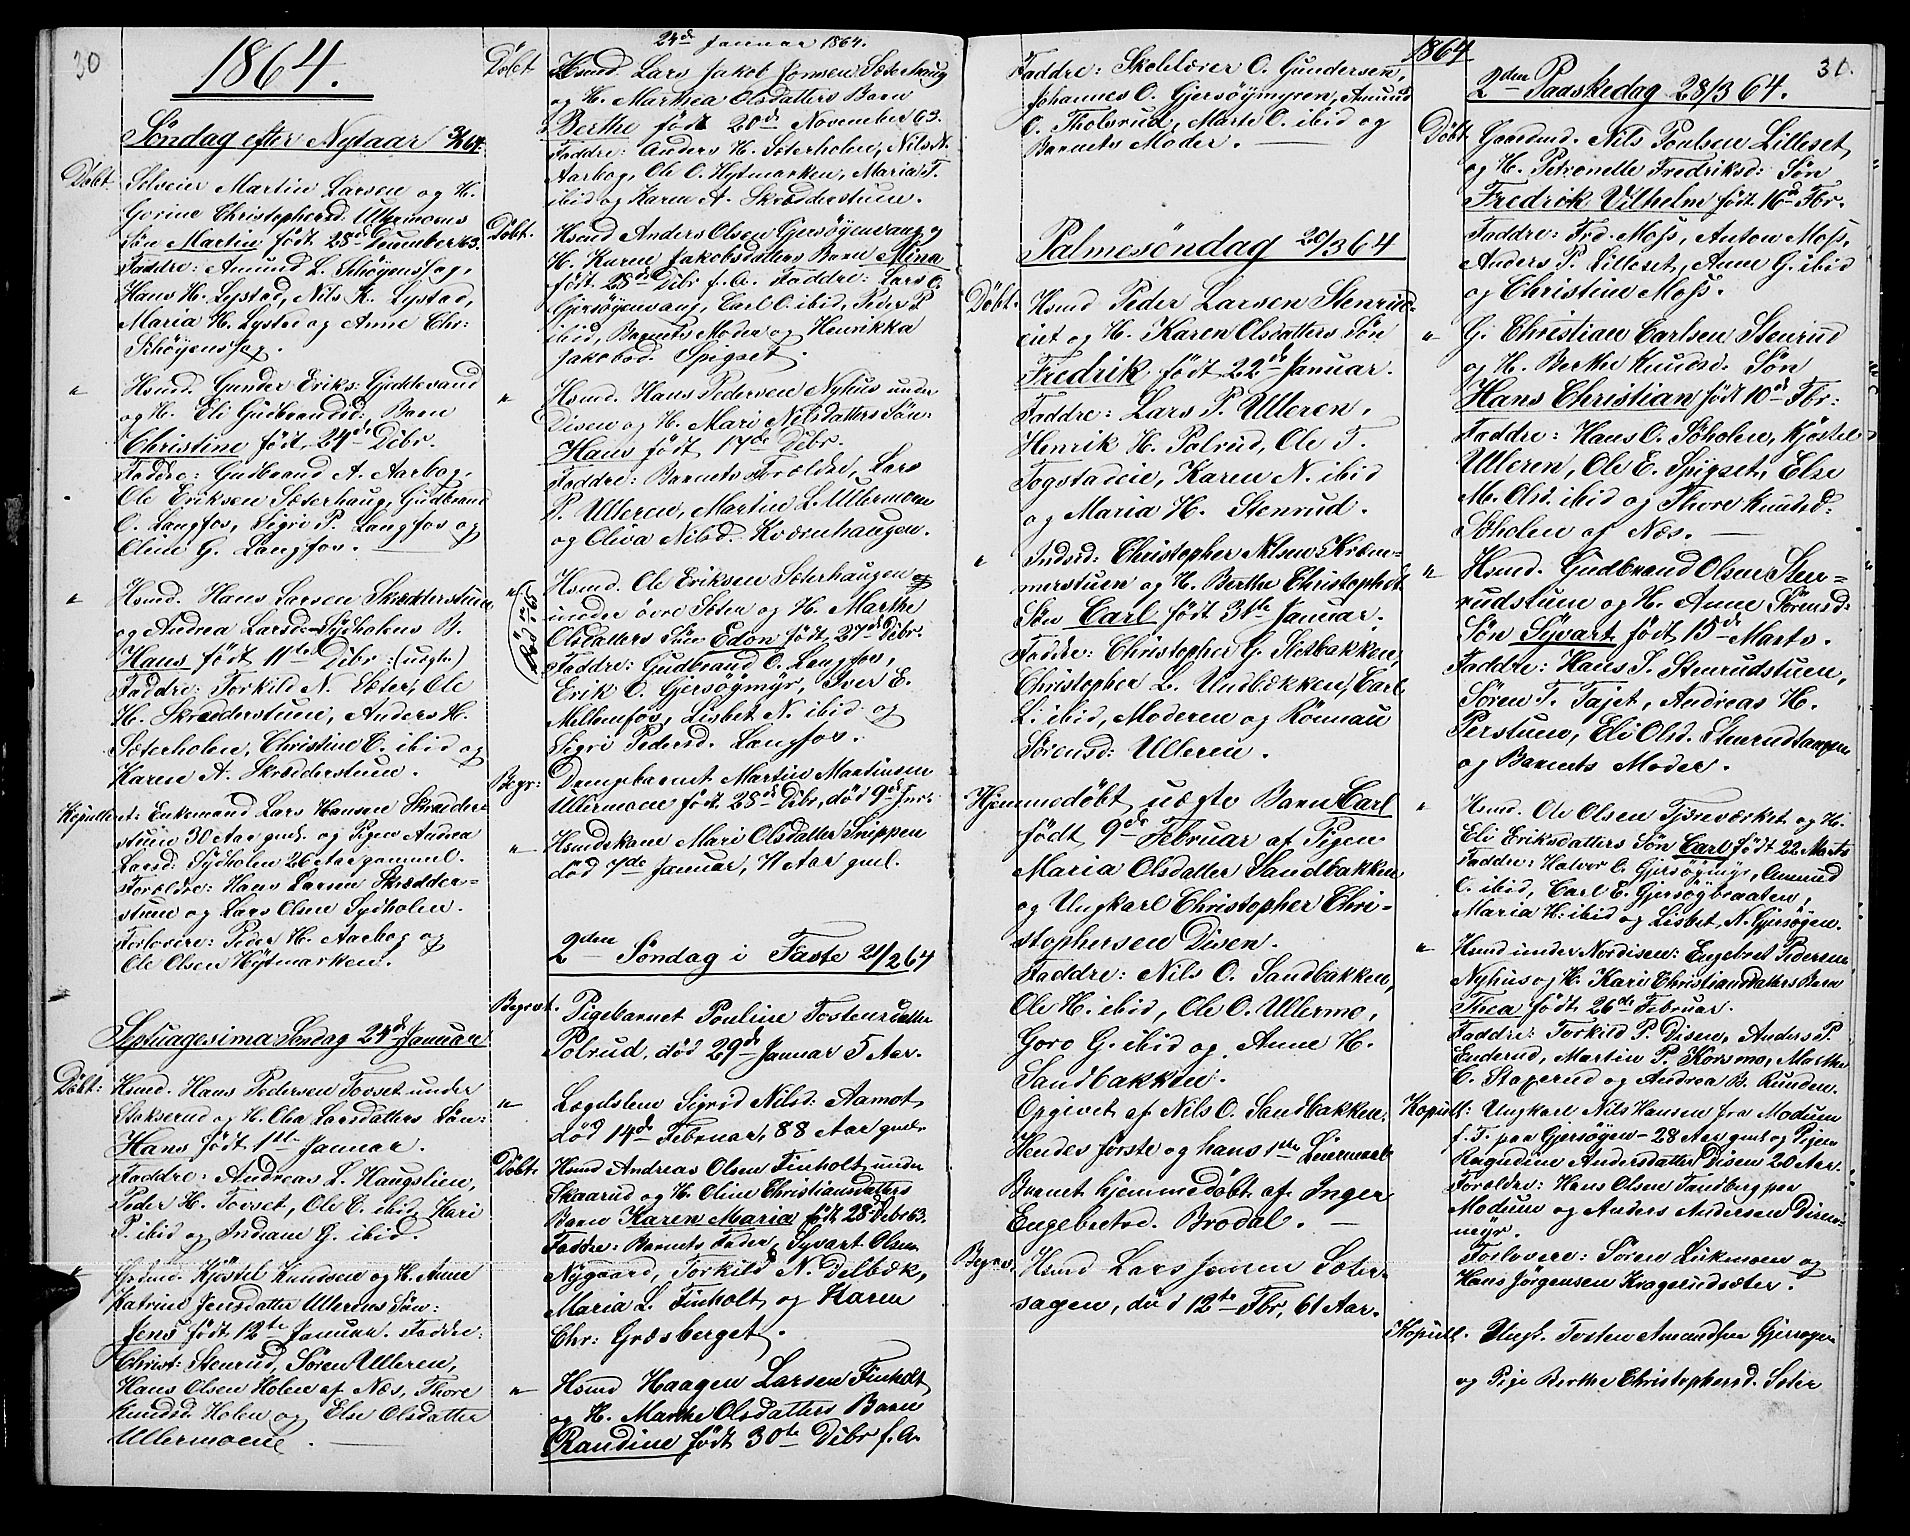 30
1864.
Søndag efter Nytaar 3/1 64.
Døbt Selveier Martin Larsen og H.
Gorine Christophersd. Ullermoens
Søn Martin født 28de December 63.
Faddre: Amund L. Skøyenssag,
Hans H. Lystad, Nils K. Lystad,
Maria H. Lystad og Anne Chr:
Skøyenssag.
" Hsmd. Gunder Eriks: Gjeddevand
og H. Eli Gudbrandsd: Barn
Christine født 24de Decbr.
Faddre: Gudbrand A. Aarbog,
Ole Eriksen Sæterhaug, Gudbrand
O. Langfos, Sigri P. Langfos og
Oline G. Langfos.
" Hsmd. Hans Larsen Skrædderstuen
og Andrea Larsd. Sydholens B.
Hans født 11te Decbr: (uægte)
Faddre: Torkild N. Sæter, Ole
H. Skrædderstuen, Anders H.
Sæterholen, Christine O. ibid og
Karen A. Skrædderstuen.
Kopuleret: Enkemand Lars Hansen Skrædder-
stuen 30 Aar gml. og Pigen Andrea
Larsd: Sydholen 26 Aar gammel.
Forældre: Hans Larsen Skrædder-
stuen og Lars Olsen Sydholen.
Forlovere: Peder H. Aarbog og
Ole Olsen Hytmarken.
Septuagesima Søndag 24de Januar
Døbt: Hsmd. Hans Pedersen Tovset under
Stakserud og H. Olia Larsdatters Søn:
Hans født 1ste Januar.
Faddre: Andreas L. Haugslien,
Peder H. Tovset, Ole O. ibid, Kari
P. ibid og Indiane G. ibid.
" Grdmd. Kjøstel Knudsen og H. Anne
Katrine Jensdatter Ullerens Søn:
Jens født 12te Januar. Faddre:
Christ: Stenrud, Søren Ulleren,
Hans Olsen Holen af Næs, Thore
Knudsd. Holen og Else Olsdatter
Ullermoene.
24de Januar 1864.
Døbt Hsmd. Lars Jakob Jonsen Sæterhaug
og H. Marthea Olsdatters Barn
Berthe født 20de November 63.
Faddre: Anders H. Sæterholen, Nils N.
Aarbog, Ole O. Hytmarken, Maria T.
ibid og Karen A. Skrædderstuen.
Døbt. Hsmd Anders Olsen Gjersøyenvang og
H. Karen Jakobsdatters Barn Mina
født 28de Decbr f. A. Faddre: Lars O.
Gjersøyenvang, Carl O. ibid, Peder P.
ibid, Barnets Moder og Henrikka
Jakobsd. Spigset.
" Hsmd. Hans Pedersen Nyhus under
Disen og H. Mari Nilsdatters Søn:
Hans født 17de Decbr.
Faddre: Barnets Forældre, Lars
P. Ulleren, Martin L. Ullermoen
og Oliva Nilsd. Kværnhaugen.
" Hsmd. Ole Eriksen Sæterhaugen
under øvre Seter og H. Marthe
Olsdatters Søn Edon født 27de Decbr.
Faddre: Gudbrand O. Langfos,
Erik O. Gjersøymyr, Iver E.
Mellemfos, Lisbet N. ibid og
Sigri Pedersd. Langfos.
Begr: Drengebarnet Martin Martinsen
Ullermoen født 28de Decbr, død 9de Jan:
" Hsmdskone Mari Olsdatter Snippen
død 7de Januar, 71 Aar gml.
2den Søndag i Faste 21/2 64
Begravet. Pigebarnet Pouline Tostensdatter
Polrud, død 29de Januar 5 Aar.
" Lægdslem Sigrid Nilsd. Aamot,
død 14de Februar, 88 Aar gml.
Døbt. Hsmd Andreas Olsen Finholt under
Skaarud og H. Oline Christiansdatters
Barn Karen Maria født 28 Decbr 63.
Faddre: Barnets Fader, Syvart Olsen
Nygaard, Torkild N. Delbæk,
Maria L. Finholt og Karen
Chr: Græsberget.
" Hsmd Haagen Larsen Finholt
og H. Marthe Olsdatters Barn
Randine født 30te Decbr f. A.
1864
Faddre: Skolelærer O. Gundersen,
Johannes O. Gjersøymyren, Amund
O. Tholsrud, Marte O. ibid og
Barnets Moder.
Palmesöndag 20/3 64
Døbt. Hsmd Peder Larsen Stenrud-
eiet og H. Karen Olsdatters Søn
Fredrik født 22de Januar.
Faddre: Lars P. Ulleren,
Henrik H. Polrud, Ole T.
Togstadeie, Karen N. ibid
og Maria H. Stenrud.
" Indsd: Christopher Nilsen Kræm-
merstuen og H. Berthe Christophersd:
Søn Carl født 31te Januar.
Faddre: Christopher G. Sletbakken,
Christopher L. Undbækken, Carl
L. ibid, Moderen og Rönnau
Sörensd: Ulleren.
Hjemmedøbt uægte Barn Carl
født 9de Februar af Pigen
Maria Olsdatter Sandbakken
og Ungkarl Christopher Chri-
stophersen Disen.
Faddre: Nils O. Sandbakken,
Ole H. ibid, Ole O. Ullermo,
Goro G. ibid og Anne H.
Sandbakken.
Opgivet af Nils O. Sandbakken.
Hendes første og hans 1ste Leiermaal.
Barnet hjemmedøbt af Inger
Engebretsd. Brodal.
Begrav. Hsmd Lars Jonsen Sæter-
sagen, død 12te Fbr, 61 Aar.
31.
2den Paaskedag 28/3 64.
Døbt Gaardmd. Nils Poulsen Lilleset
og H. Petronelle Fredriksd: Søn
Fredrik Vilhelm født 16de Fbr.
Faddre: Frd. Moss, Anton Moss,
Anders P. Lilleset, Anne G. ibid
og Christine Moss.
" G. Christian Carlsen Stenrud
og H. Berthe Knudsd. Søn
Hans Christian født 10de Fbr:
Faddre: Hans O. Søholen, Kjøstel
Ulleren, Ole E. Spigset, Else
M. Olsd. ibid og Thore Knudsd:
Søholen af Næs.
" Hsmd. Gudbrand Olsen Sten-
rudstuen og H. Anne Sørensd:
Søn Syvart født 15de Marts.
Faddre: Hans S. Stenrudstuen,
Søren T. Tajet, Andreas H.
Perstuen, Eli Olsd. Stenrudtangen
og Barnets Moder.
" Hsmd. Ole Olsen Tjæreværket og H.
Eli Eriksdatters Søn Carl født 22 Marts
Faddre: Halvor O. Gjersøymyr, Amund
O. ibid, Carl E. Gjersøybraaten,
Maria H. ibid og Lisbet N. Gjersøyen.
" Hsmd under Nordisen: Engebret Pedersen
Nyhus og H. Kari Christiansdatters Barn
Thea født 26de Februar.
Faddre: Torkild P. Disen, Anders P.
Enderud, Martin P. Korsmo, Marthe
O. Staperud og Andrea B. Runden.
Kopull: Ungkarl Nils Hansen fra Modum
f. T. paa Gjersøyen - 28 Aar gml og Pigen
Ragndine Andersdatter Disen 20 Aar.
Forældre: Hans Olsen Tandberg paa
Modum og Anders Andersen Disen-
myr.
Forlovere: Søren Liermoen og
Hans Jörgensen Kragerudsæter.
Kopull. Ungk. Tosten Amundsen Gjersøyen
og Pige Berthe Christophersd. Sæter